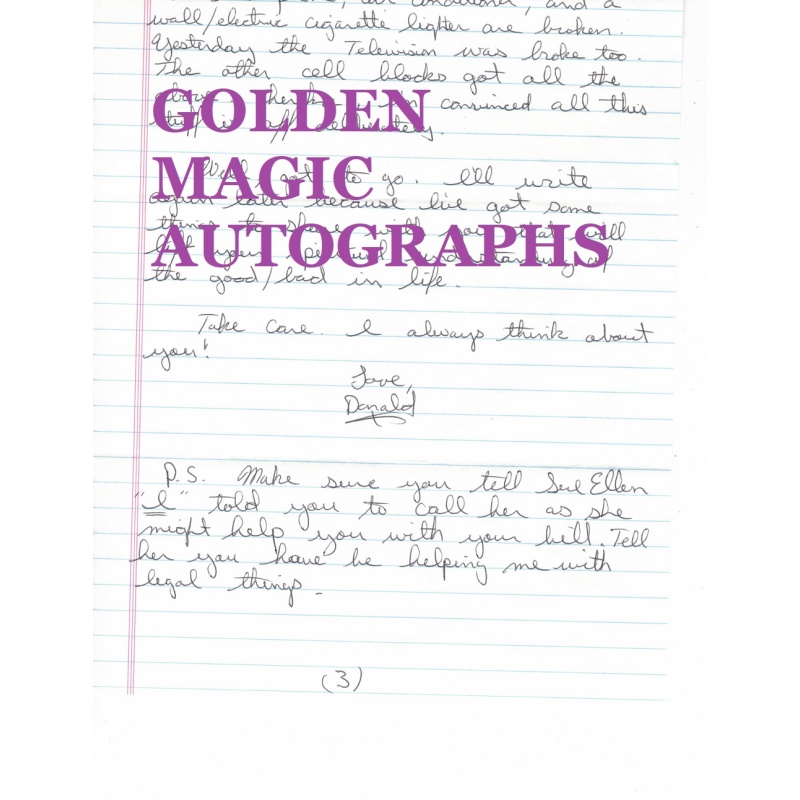 air conditioner, and a
wall/electric cigarette lighter are broken.
Yesterday the Television was broke too.
The other cell blocks got all the
convinced all this
GOLDEN
Well got to go. I'll write
MAGIC
again later because I've got some
things to share with you that will
AUTOGRAPHS
the good/bad in life.
Take care. I always think about
you!
Love,
Donald
P.S. Make sure you tell Sue Ellen
"I" told you to call her as she
might help you with your bill. Tell
her you have be helping me with
legal things.
(3)